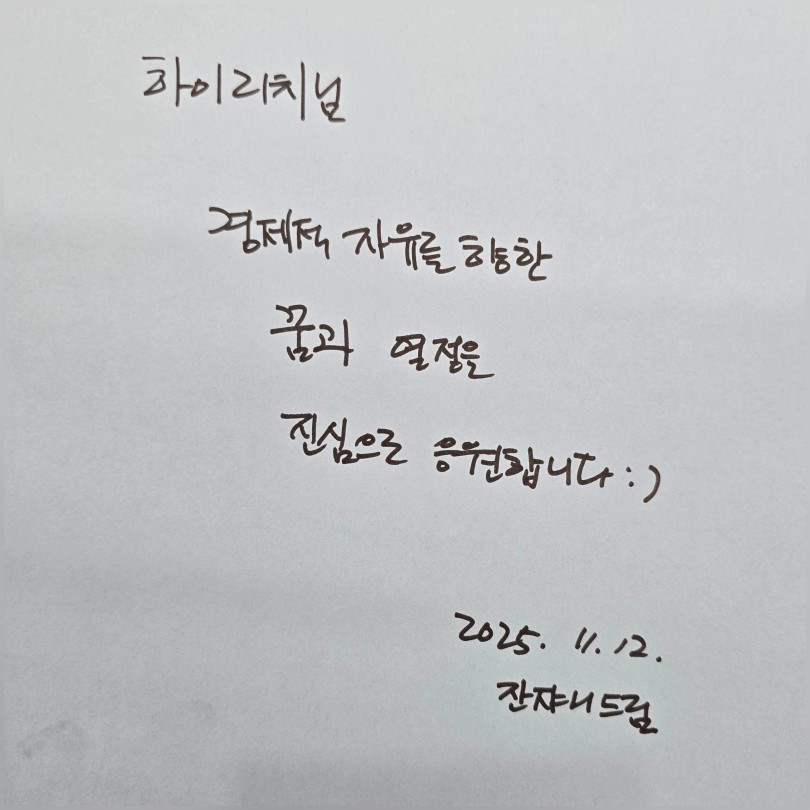 하이리치님
경제적 자유를 향한
꿈과 열정을
진심으로 응원합니다 :)
2025. 11. 12.
잔쟈니드림